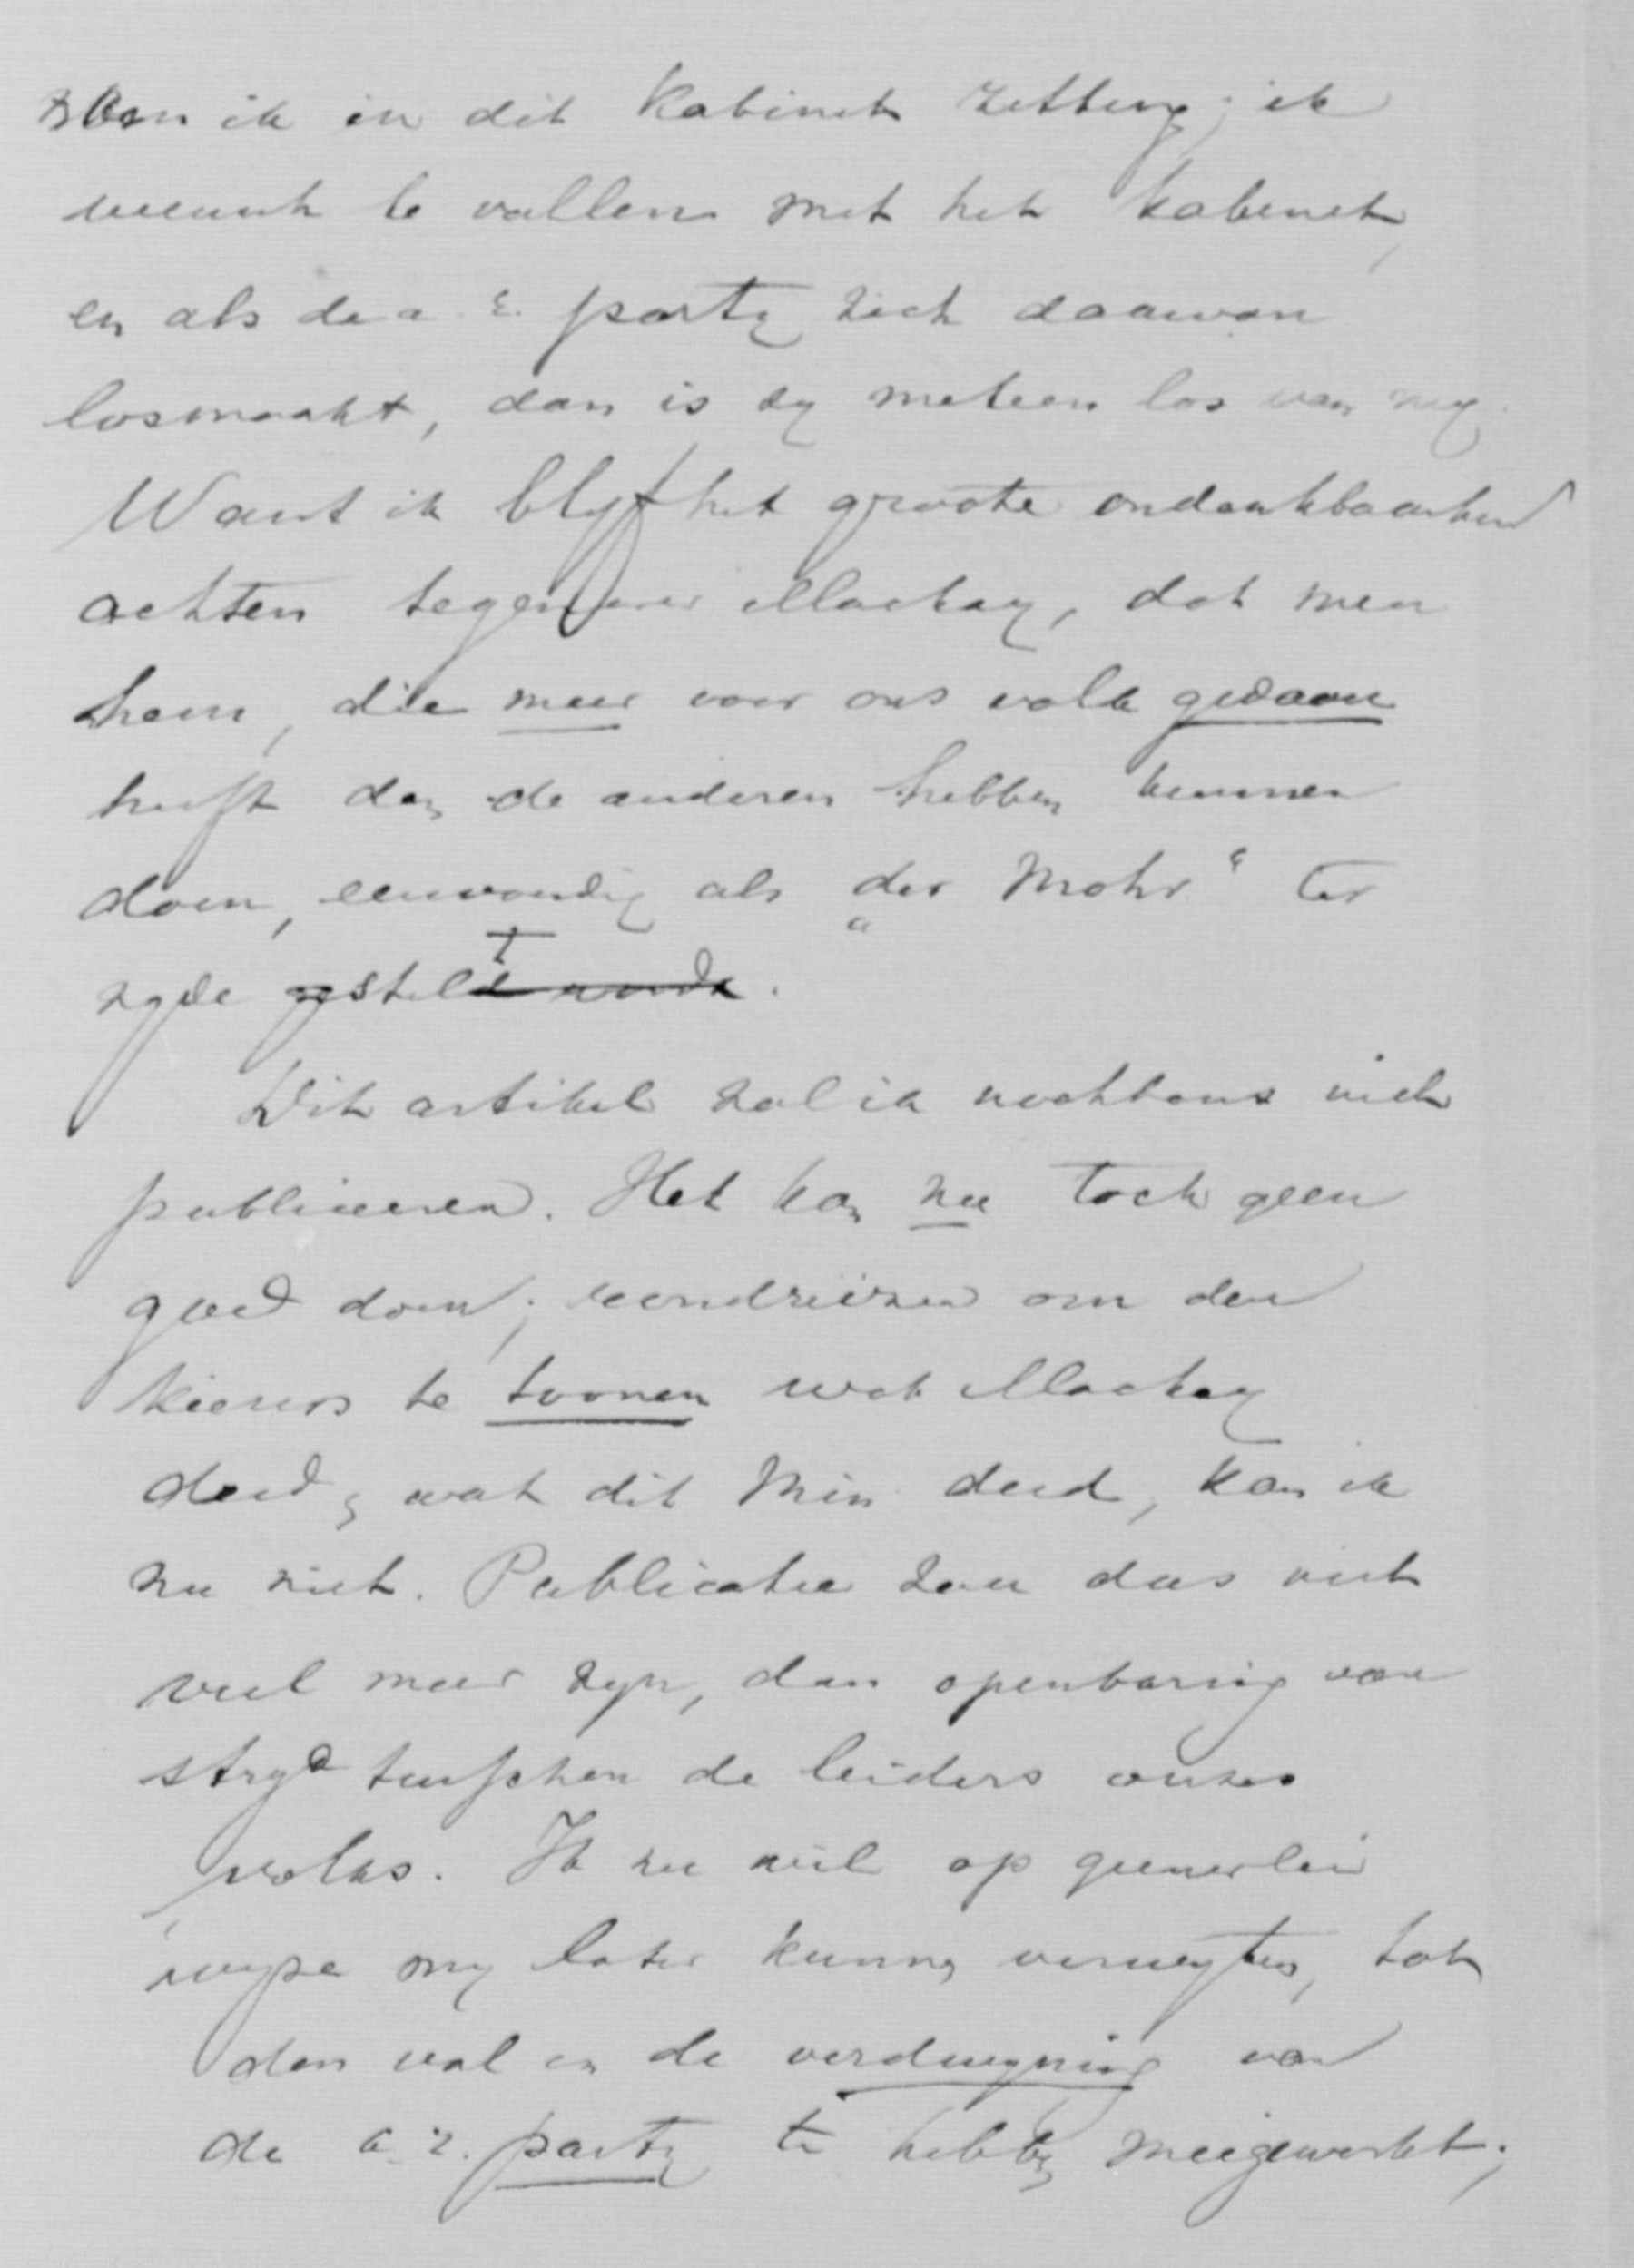 ik in dit kabinet zitting; ik
wensch te vallen met het kabinet,
en als de a. r. party zich daarvan
losmaakt, dan is zy meteen los van my.
Want ik blyf het groote ondankbaarheid
achten tegenover Mackay, dat men
hem, die meer voor ons volk gedaan
heeft dan de anderen hebben kunnen
doen, eenvoudig als „der Mohr“ ter
zyde stelt.
Dit artikel zal ik nochtans niet
publiceeren. Het kan nu toch geen
goed doen; rondreizen om den
kiezers te toonen wat Mackay
deed, wat dit Min. deed, kan ik
nu niet. Publicatie zou dus niet
veel meer zyn, dan openbaring van
stryd tusschen de leiders onzes
volks. Ik nu wil op geenerlei
wyze my later kunnen verwyten, tot
den val en de verdwyning van
de a. r. party te hebben meegewerkt;